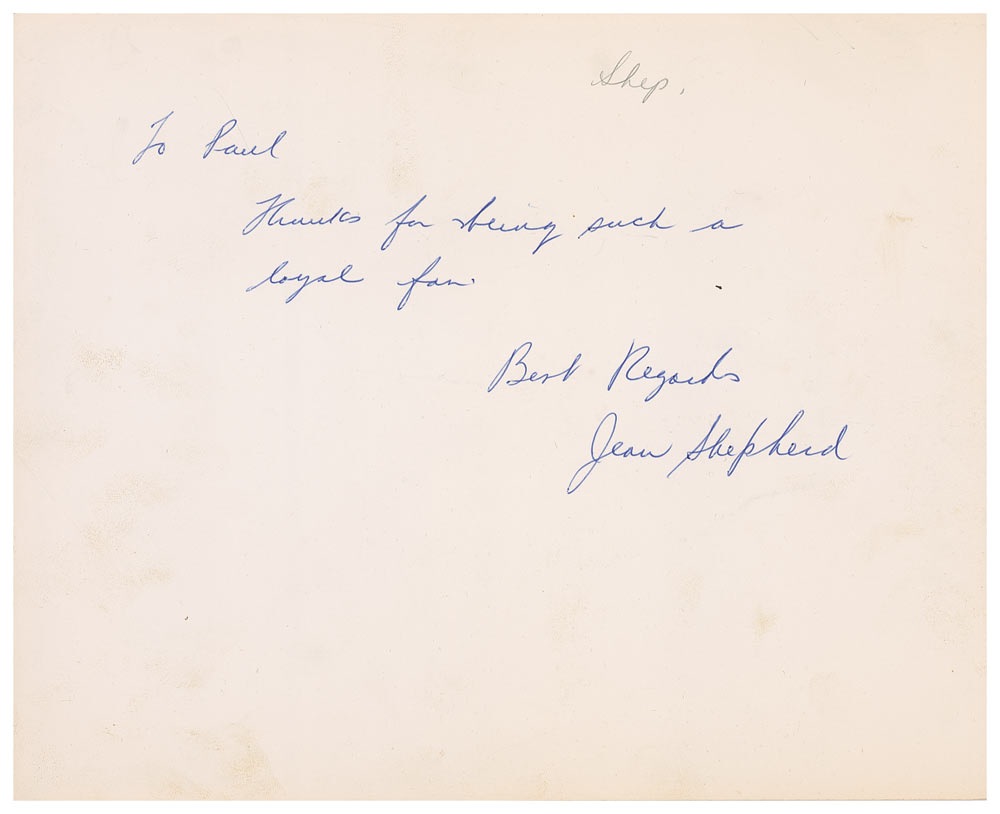 Shep.
To Paul
Thanks for being such a
loyal fan.
Best Regards
Jean Shepherd